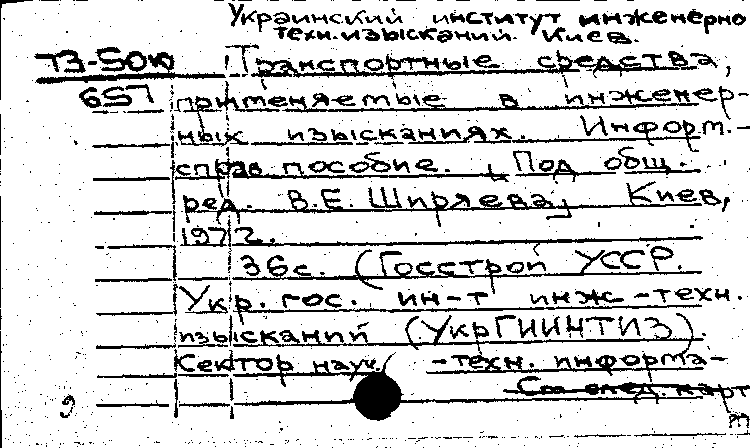 Украинский институт инженерно
техн. изысканий. Киев.
Т3-50ю Транспортные средства,
657 применяемые в инженер-
ных изысканиях. Информ.-
справ. пособие. [Под общ.
ред. В.Е. Ширяева], Киев,
1972.
36с. (Госстрой УССР.
Укр. гос. ин-т инж.-техн.
изысканий (УкрГИИНТИЗ).
Сектор науч.-техн. информа-
См след. карт
9